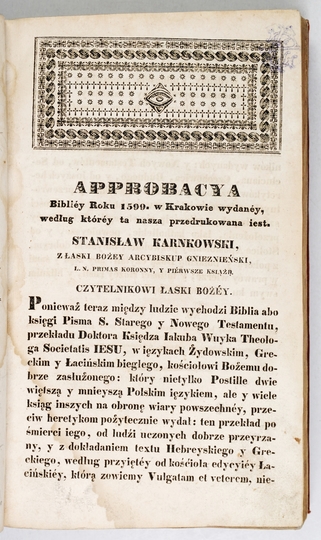 APPROBACYA
Bibliéy Roku 1599. w Krakowie wydanéy,
według któréy ta nasza przedrukowana iest.
STANISŁAW KARNKOWSKI,
Z ŁASKI BOŻEY ARCYBISKUP GNIEZNIEŃSKI,
L. N. PRIMAS KORONNY, Y PIÉRWSZE KSIĄŻĘ.
CZYTELNIKOWI ŁASKI BOŻÉY.
Ponieważ teraz między ludzie wychodzi Biblia abo
księgi Pisma S. Starego y Nowego Testamentu,
przekładu Doktora Księdza Iakuba Wuyka Theolo-
ga Societatis IESU, w ięzykach Żydowskim, Gre-
ckim y Łacińskim biegłego, kościołowi Bożemu do-
brze zasłużonego: który nietylko Postille dwie
więtszą y mnieyszą Polskim ięzykiem, ale y wiele
ksiąg inszych na obronę wiary powszechnéy, prze-
ciw heretykom pożytecznie wydał: ten przekład po
śmierci iego, od ludźi uczonych dobrze przeyrza-
ny, y z dokładaniem textu Hebreyskiego y Gre-
ckiego, według przyiętéy od kośćioła edycyiéy Ła-
cińskiéy, którą zowiemy Vulgatam et veterem, nie-